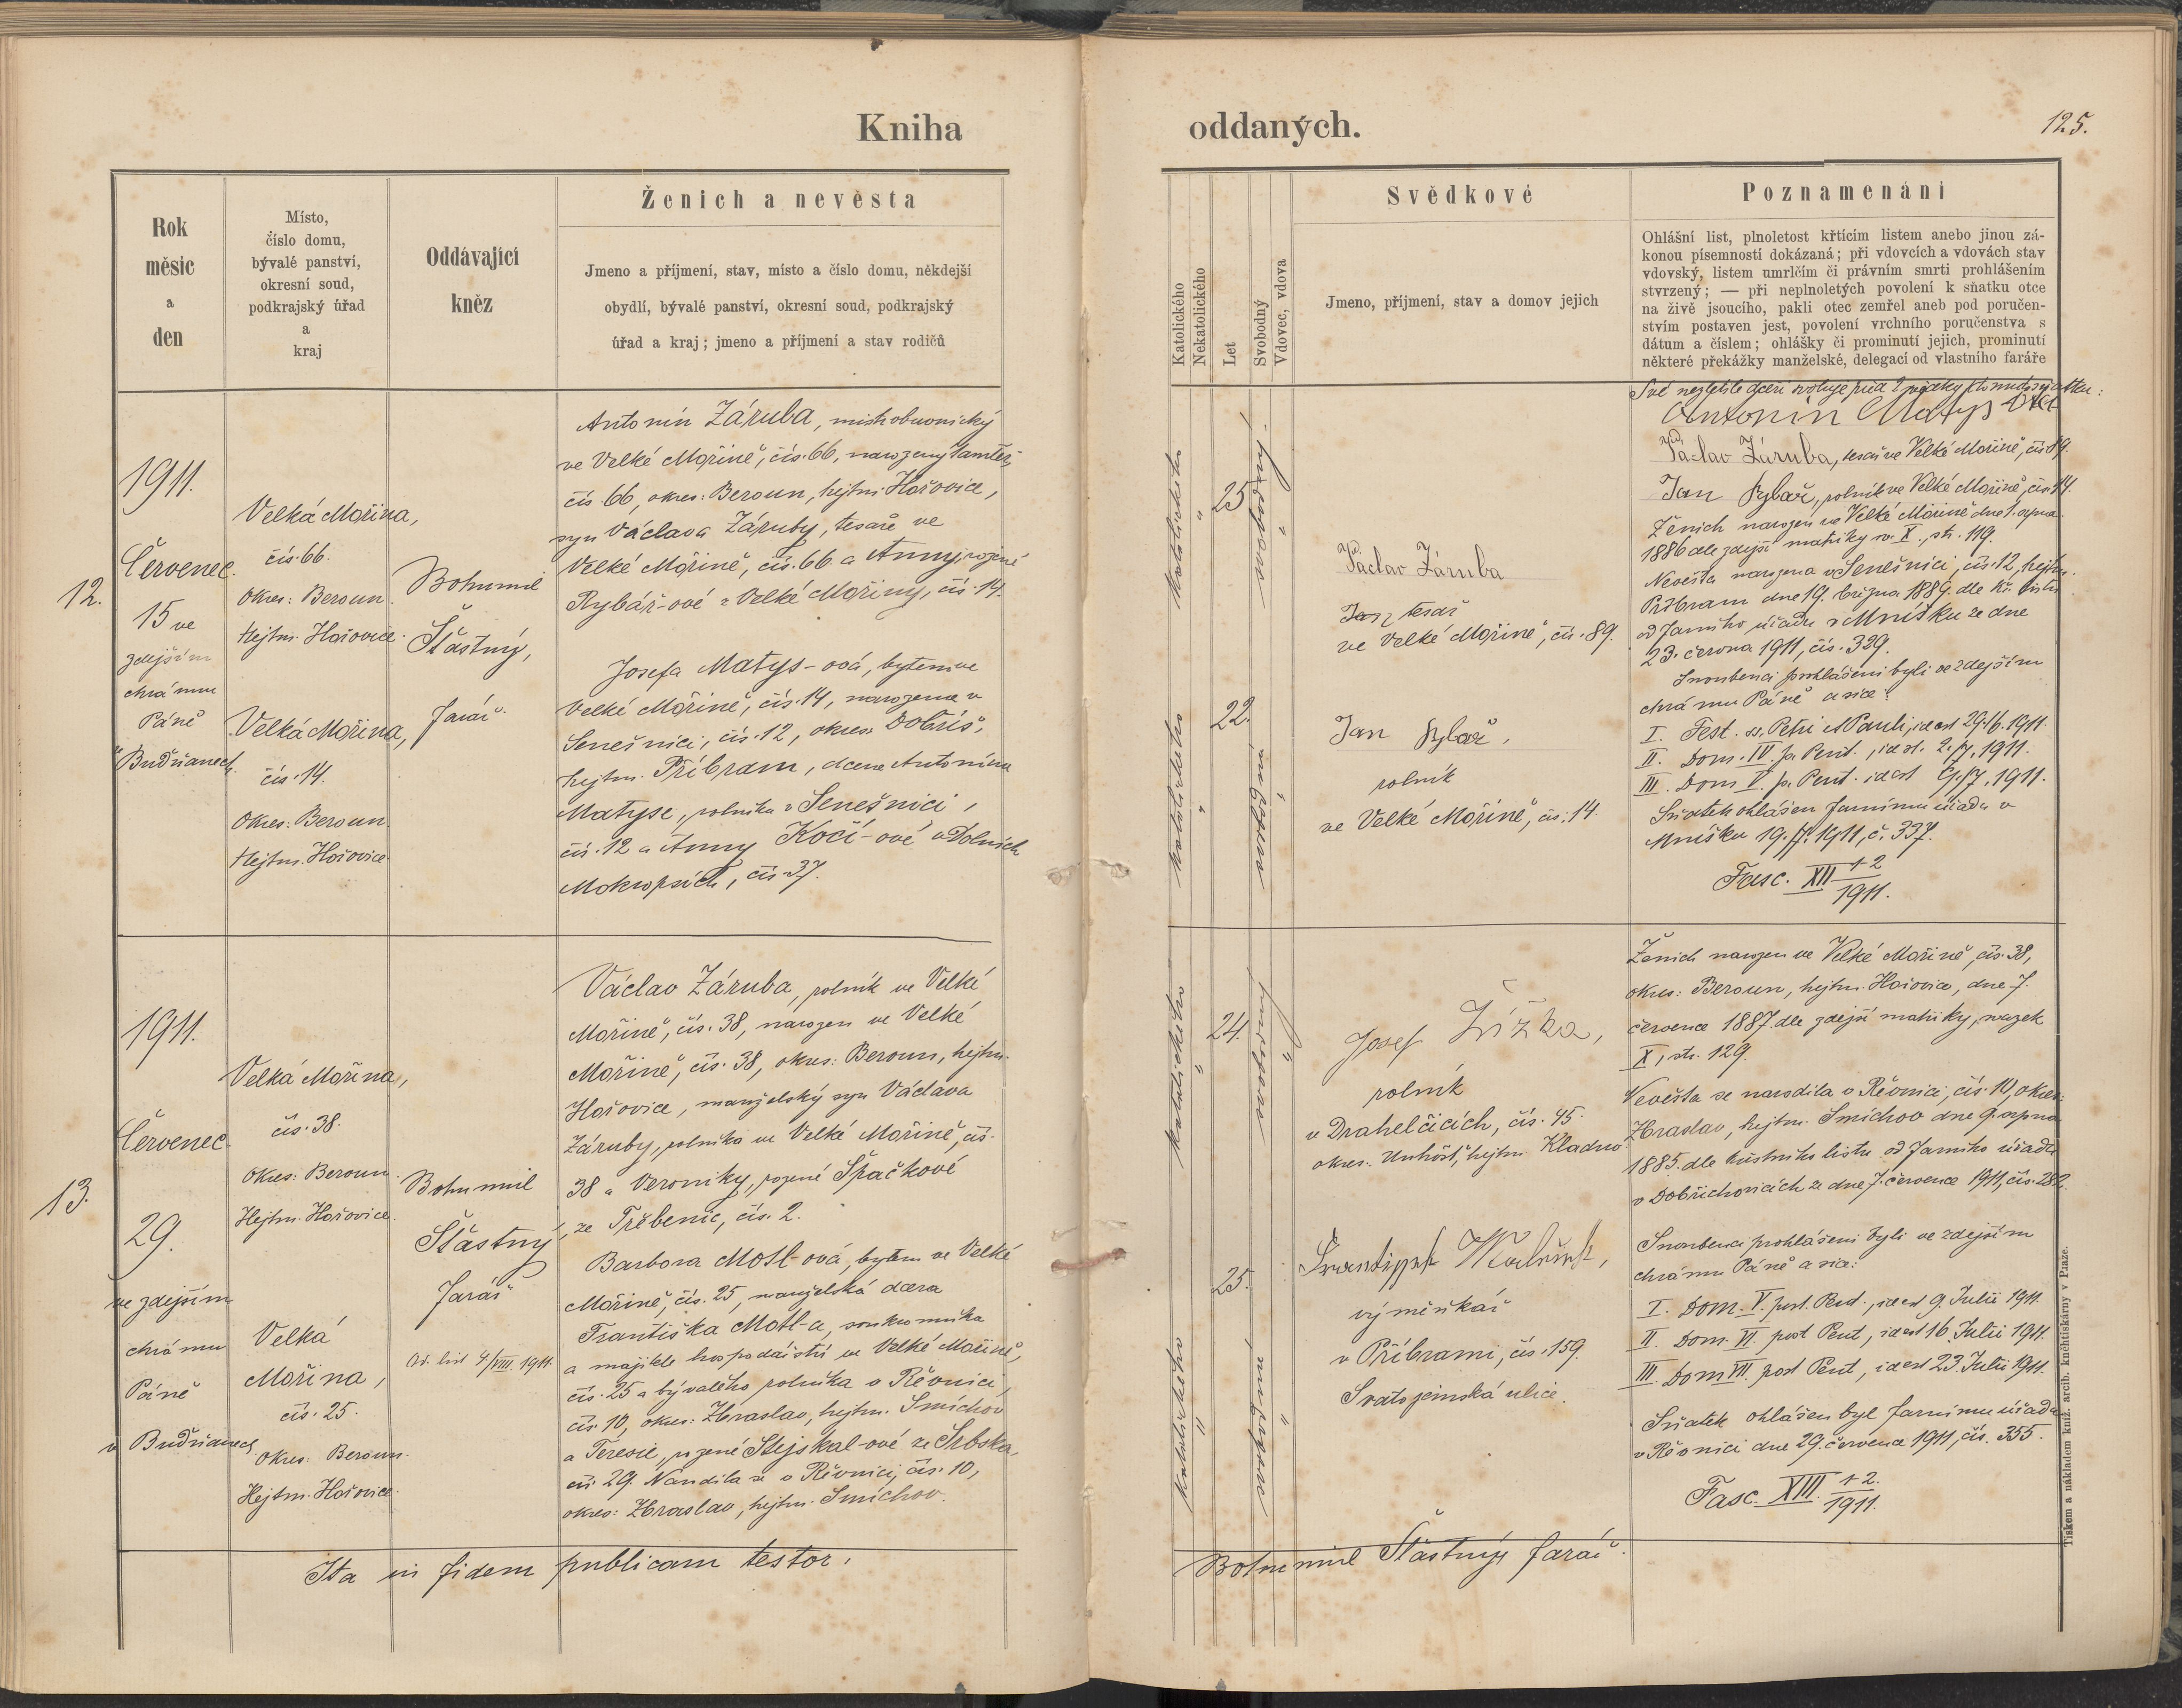 Kniha
oddaných.
125.
Rok
měsíc
a
den
Místo,
číslo domu,
bývalé panství,
okresní soud,
podkrajský úřad
a
kraj
Oddávající
kněz
Ženich a nevěsta
Jmeno a příjmení, stav, místo a číslo domu, někdejší
obydlí, bývalé panství, okresní soud, podkrajský
úřad a kraj; jmeno a příjmení a stav rodičů
Katolického
Nekatolického
Let
Svobodný
Vdovec, vdova
Svědkové
Jmeno, příjmení, stav a domov jejich
Poznamenání
Ohlášní list, plnoletost křtícím listem anebo jinou zá-
konou písemností dokázaná; při vdovcích a vdovách stav
vdovský, listem umrlčím či právním smrti prohlášením
stvrzený; — při neplnoletých povolení k sňatku otce
na živě jsoucího, pakli otec zemřel aneb pod poručen-
stvím postaven jest, povolení vrchního poručenstva s
dátum a číslem; ohlášky či prominutí jejich, prominutí
některé překážky manželské, delegací od vlastního faráře
12.
1911.
Červenec.
15 ve
zdejším
chrámu
Páně
v Budňanech
Velká Mořina,
čís. 66.
Okres: Beroun.
Hejtm. Hořovice.
Velká Mořina,
čís. 14.
Okres: Beroun.
Hejtm. Hořovice.
Bohumil
Šťastný,
farář.
Antonín Záruba, mistr obuvnický
ve Velké Mořině, čís. 66, narozený tamtéž
čís. 66, okres: Beroun, hejtm. Hořovice,
syn Václava Záruby, tesaře ve
Velké Mořině, čís. 66 a Anny, rozené
Rybář-ové z Velké Mořiny, čís. 14.
Josefa Matys-ová, bytem ve
Velké Mořině, čís. 14, narozena v
Senešnici, čís. 12, okres Dobříš,
hejtm. Příbram, dcera Antonína
Matyse, rolníka v Senešnici,
čís. 12 a Anny Kočí-ové v Dolních
Mokropsích, čís. 37.
katolického
"
25
svobodný
"
katolického
"
22.
svobodná
"
Václav Záruba
tesař
ve Velké Mořině, čís. 89.
Jan Rybař,
rolník
ve Velké Mořině, čís. 14.
Své nezletilé dceři svoluje před 2 svědky k tomuto sňatku:
Antonín Matys otec
Václav Záruba, tesař ve Velké Mořině, čís. 89.
Jan Rybař, rolník ve Velké Mořině, čís. 14.
Ženich narozen ve Velké Mořině dne 1. srpna
1886 dle zdejší matriky sv. X., str. 119.
Nevěsta narozena v Senešnici, čís. 12, hejtm.
Příbram dne 19. března 1889. dle kř. listu
od farního úřadu v Mníšku ze dne
23. června 1911, čís. 339.
Snoubenci prohlášeni byli ve zdejším
chrámu Páně a sice:
I. Fest. ss. Petri et Pauli, id est 29./6. 1911.
II. Dom. IV. p. Pent., id est. 2./7, 1911.
III. Dom V. p. Pent. id est 9./7. 1911.
Sňatek ohlášen farnímu úřadu v
Mníšku 19./7. 1911, č. 337.
Fasc. XII 1-2
1911.
13.
1911.
Červenec.
29.
ve zdejším
chrámu
Páně
v Budňanech.
Velká Mořina,
čís. 38.
Okres: Beroun.
Hejtm. Hořovice.
Velká
Mořina,
čís. 25.
Okres: Beroun.
Hejtm. Hořovice.
Bohumil
Šťastný,
farář
Od. list 4/VIII. 1911.
Václav Záruba, rolník ve Velké
Mořině, čís. 38, narozen ve Velké
Mořině, čís. 38, okres: Beroun, hejtm.
Hořovice, manželský syn Václava
Záruby, rolníka ve Velké Mořině, čís.
38 a Veroniky, rozené Špačkové
ze Třebenic, čís. 2.
Barbora Motl-ová, bytem ve Velké
Mořině, čís. 25, manželská dcera
Františka Motl-a, soukromníka
a majitele hospodářství ve Velké Mořině,
čís. 25 a bývalého rolníka v Řevnici,
čís. 10, okres: Zbraslav, hejtm. Smíchov
a Teresie, rozené Stejskal-ové ze Srbska
čís. 29. Narodila se v Řevnici, čís. 10,
okres: Zbraslav, hejtm. Smíchov.
katolického
"
24.
svobodný
"
katolického
"
25.
svobodná
"
Josef Žižka,
rolník
v Drahelčicích, čís. 45.
okres: Unhošť, hejtm. Kladno
výměnkář
v Příbrami, čís. 159.
ulice.
Ženich narozen ve Velké Mořině, čís. 38,
okres: Beroun, hejtm. Hořovice, dne 7.
července 1887. dle zdejší matriky, svazek
X, str. 129.
Nevěsta se narodila v Řevnici, čís. 10, okres:
Zbraslav, hejtm. Smíchov dne 9. srpna
1885. dle křestního listu od farního úřadu
v Dobřichovicích ze dne 7. července 1911, čís. 282.
Snoubenci prohlášeni byli ve zdejším
chrámu Páně a sice:
I. Dom. V. post. Pent., id est 9. Julii 1911.
II. Dom. VI. post Pent, id est 16. Julii 1911.
III. Dom VII. post Pent, id est 23. Julii 1911.
Sňatek ohlášen byl farnímu úřadu
v Řevnici dne 29. července 1911, čís. 355.
Fasc. XIII. 1-2.
1911.
Ita in fidem publicam testor.
Bohumil Šťastný, farář.
Tiskem a nákladem kníž. arcib. knihtiskárny v Praze.